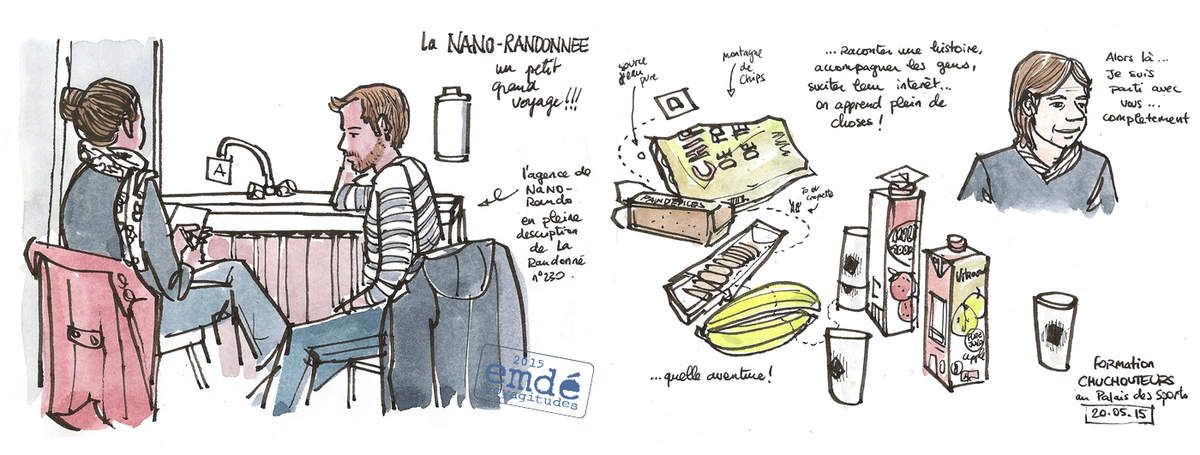 La NANO-RANDONNEE
un petit
grand
voyage!!!
A
l'agence de
NANO-
Rando
en pleine
description
de La
Randonné
n°230.
2015
emdé
source
d'eau
pure
montagne
de
chips
... raconter une histoire,
accompagner les gens,
suciter leur interêt...
on apprend plein de
choses!
Alors là...
Je suis
parti avec
vous...
complètement
CHIPS
DE
DE
PAIN D'EPICES
PURE
JUICE
apple
...quelle aventure!
FORMATION
CHUCHOTEURS
au Palais des Sports
20.05.15